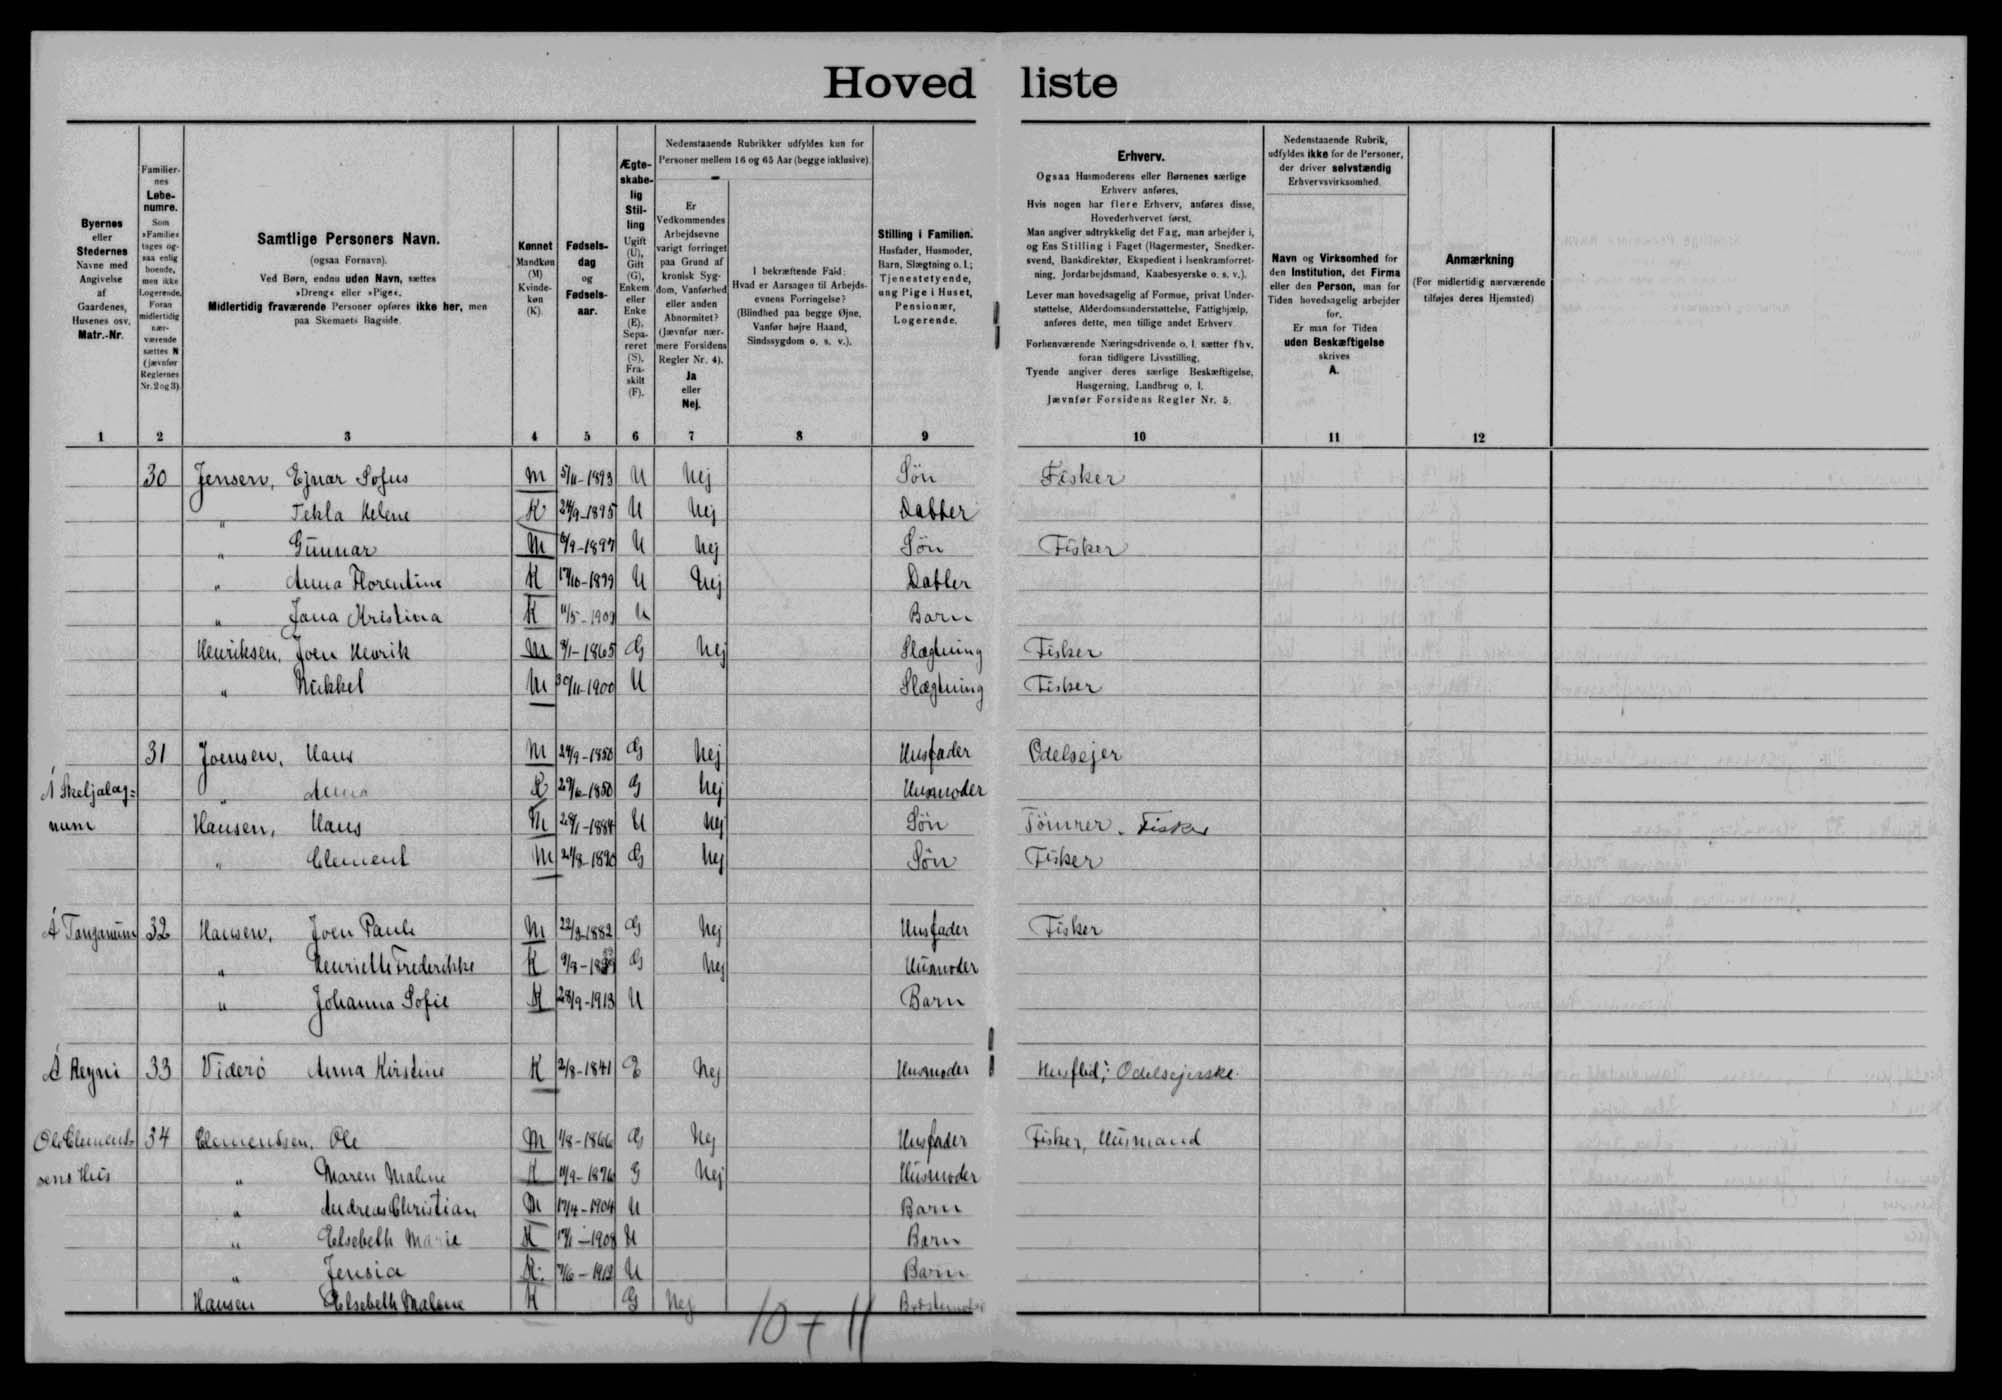 Hoved liste
Byernes
eller
Stedernes
Navne med
Angivelse
af
Gaardenes,
Husenes osv.
Matr.-Nr.
Familier-
nes
Løbe-
numre.
Som
»Familie«
tages og-
saa enlig
boende,
men ikke
Logerende.
Foran
midlertidig
nær-
værende
sættes N
(jævnfør
Reglernes
Nr. 2 og 3).
Samtlige Personers Navn.
(ogsaa Fornavn).
Ved Børn, endnu uden Navn, sættes
»Dreng« eller »Pige«.
Midlertidig fraværende Personer opføres ikke her, men
paa Skemaets Bagside.
Kønnet
Mandkøn
(M)
Kvinde-
køn
(K).
Fødsels-
dag
og
Fødsels-
aar.
Ægte-
skabe-
lig
Stil-
ling
Ugift
(U),
Gift
(G),
Enkem.
eller
Enke
(E),
Sepa-
reret
(S),
Fra-
skilt
(F).
Nedenstaaende Rubrikker udfyldes kun for
Personer mellem 16 og 65 Aar (begge inklusive).
Er
Vedkommendes
Arbejdsevne
varigt forringet
paa Grund af
kronisk Syg-
dom, Vanførhed
eller anden
Abnormitet?
(Jævnfør nær-
mere Forsidens
Regler Nr. 4).
Ja
eller
Nej.
I bekræftende Fald:
Hvad er Aarsagen til Arbejds-
evnens Forringelse?
(Blindhed paa begge Øjne,
Vanfør højre Haand,
Sindssygdom o. s. v.).
Stilling i Familien.
Husfader, Husmoder,
Barn, Slægtning o. l.;
Tjenestetyende,
ung Pige i Huset,
Pensionær,
Logerende.
Erhverv.
Ogsaa Husmoderens eller Børnenes særlige
Erhverv anføres.
Hvis nogen har flere Erhverv, anføres disse,
Hovederhvervet først.
Man angiver udtrykkelig det Fag, man arbejder i,
og Ens Stilling i Faget (Bagermester, Snedker-
svend, Bankdirektør, Ekspedient i Isenkramforret-
ning, Jordarbejdsmand, Kaabesyerske o. s. v.).
Lever man hovedsagelig af Formue, privat Under-
støttelse, Alderdomsunderstøttelse, Fattighjælp,
anføres dette, men tillige andet Erhverv.
Forhenværende Næringsdrivende o. l. sætter fhv.
foran tidligere Livsstilling.
Tyende angiver deres særlige Beskæftigelse,
Husgerning, Landbrug o. l.
Jævnfør Forsidens Regler Nr. 5.
Nedenstaaende Rubrik,
udfyldes ikke for de Personer,
der driver selvstændig
Erhvervsvirksomhed.
Navn og Virksomhed for
den Institution, det Firma
eller den Person, man for
Tiden hovedsagelig arbejder
for.
Er man for Tiden
uden Beskæftigelse
skrives
A.
Anmærkning
(For midlertidig nærværende
tilføjes deres Hjemsted)
1 2 3 4 5 6 7 8 9 10 11 12
30 Jensen, Ejnar Sofus M 5/11-1893 U Nej Søn Fisker
" Tekla Helene K 24/9-1895 U Nej Datter
" Gunnar M 6/9-1897 U Nej Søn Fisker
" Anna Florentine K 17/10-1899 U Nej Datter
" Jana Kristina K 11/5-1909 U Barn
Henriksen, Joen Henrik M 9/1-1865 G Nej Slægtning Fisker
" Mikkel M 30/11-1900 U Slægtning Fisker
31 Joensen, Hans M 24/9-1850 G Nej Husfader Odelsejer
Á Skeljalag= " Anna K 29/6-1850 G Nej Husmoder
num Hansen, Hans M 28/1-1884 U Nej Søn Tömrer. Fisker
" Clement M 21/8-1890 G Nej Søn Fisker
Á Tanganum 32 Hansen, Joen Pauli M 22/3-1882 G Nej Husfader Fisker
" Henriette Frederikke K G Nej Husmoder
" Johanna Sofie K 28/9-1913 U Barn
Á Regni 33 Viderö Anna Kirstine K 2/8-1841 E Nej Husmoder Husflid; Odelsejerske.
Ole Clement- 34 Clementsen, Ole M 1/8-1866 G Nej Husfader Fisker, Husmand
sens Hus " Maren Malene K 11/9-1876 G Nej Husmoder
" Andreas Christian M 17/4-1904 U Barn
" Elsebeth Marie K 17/1-1908 U Barn
" Jensia K. 7/6-1912 U Barn
Hansen Elsebeth Malene K G Nej
10 + 11